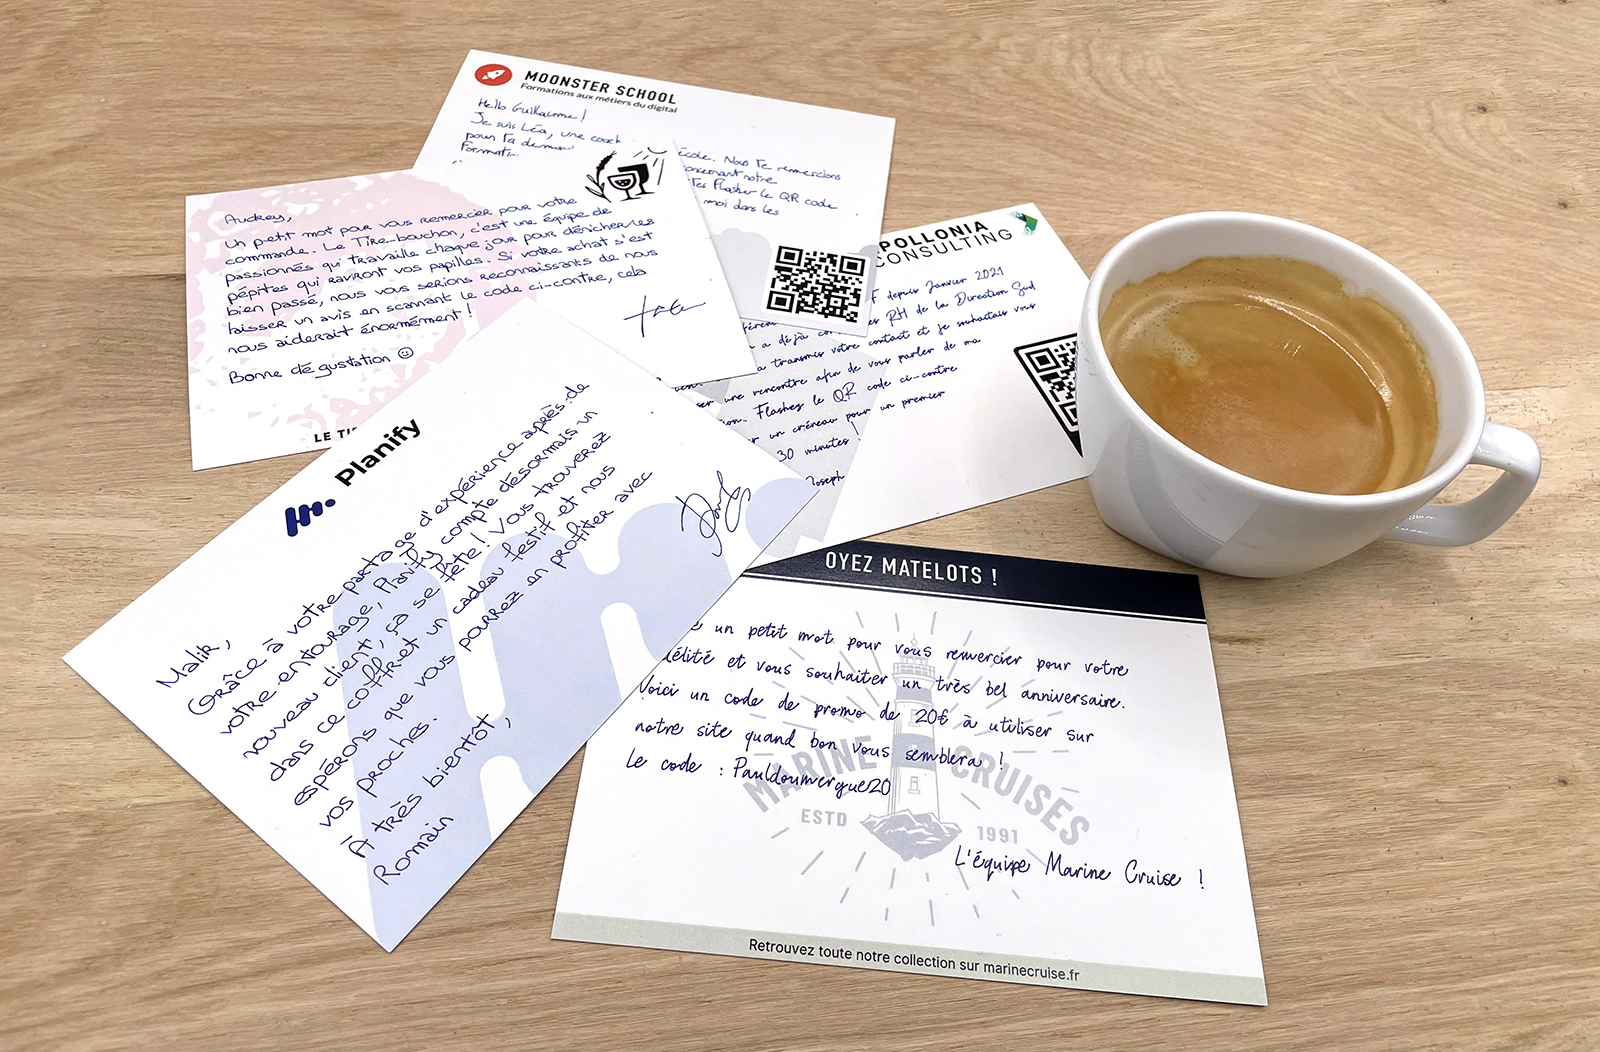 MOONSTER SCHOOL
Formations aux métiers du digital
Hello Guillaume !
Je suis Léa, une coach école. Nous te remercions
pour ta concernant notre
Flasher le QR code
moi dans les
Audrey,
Un petit mot pour vous remercier pour votre
commande. Le Tire-bouchon, c'est une équipe de
passionnés qui travaille chaque jour pour dénicher les
pépites qui raviront vos papilles. Si votre achat s'est
bien passé, nous vous serions reconnaissants de nous
laisser un avis en scannant le code ci-contre, cela
nous aiderait énormément !
Bonne dégustation ☺
LE TI
POLLONIA
CONSULTING
depuis Janvier 2021
a déjà RH de la Direction Sud
a transmis votre contact et je souhaitais vous
une rencontre afin de vous parler de ma
Flashez le QR code ci-contre
un créneau pour un premier
30 minutes !
Joseph
Planify
Malik,
Grâce à votre partage d'expérience auprès de
votre entourage, Planify compte désormais un
nouveau client, ça se fête ! Vous trouverez
dans ce coffret un cadeau festif et nous
espérons que vous pourrez en profiter avec
vos proches.
À très bientôt,
Romain
OYEZ MATELOTS !
un petit mot pour vous remercier pour votre
délité et vous souhaiter un très bel anniversaire.
Voici un code de promo de 20€ à utiliser sur
notre site quand bon vous semblera !
Le code : Pauldoumergue20
MARINE CRUISES
ESTD 1991
L'équipe Marine Cruise !
Retrouvez toute notre collection sur marinecruise.fr